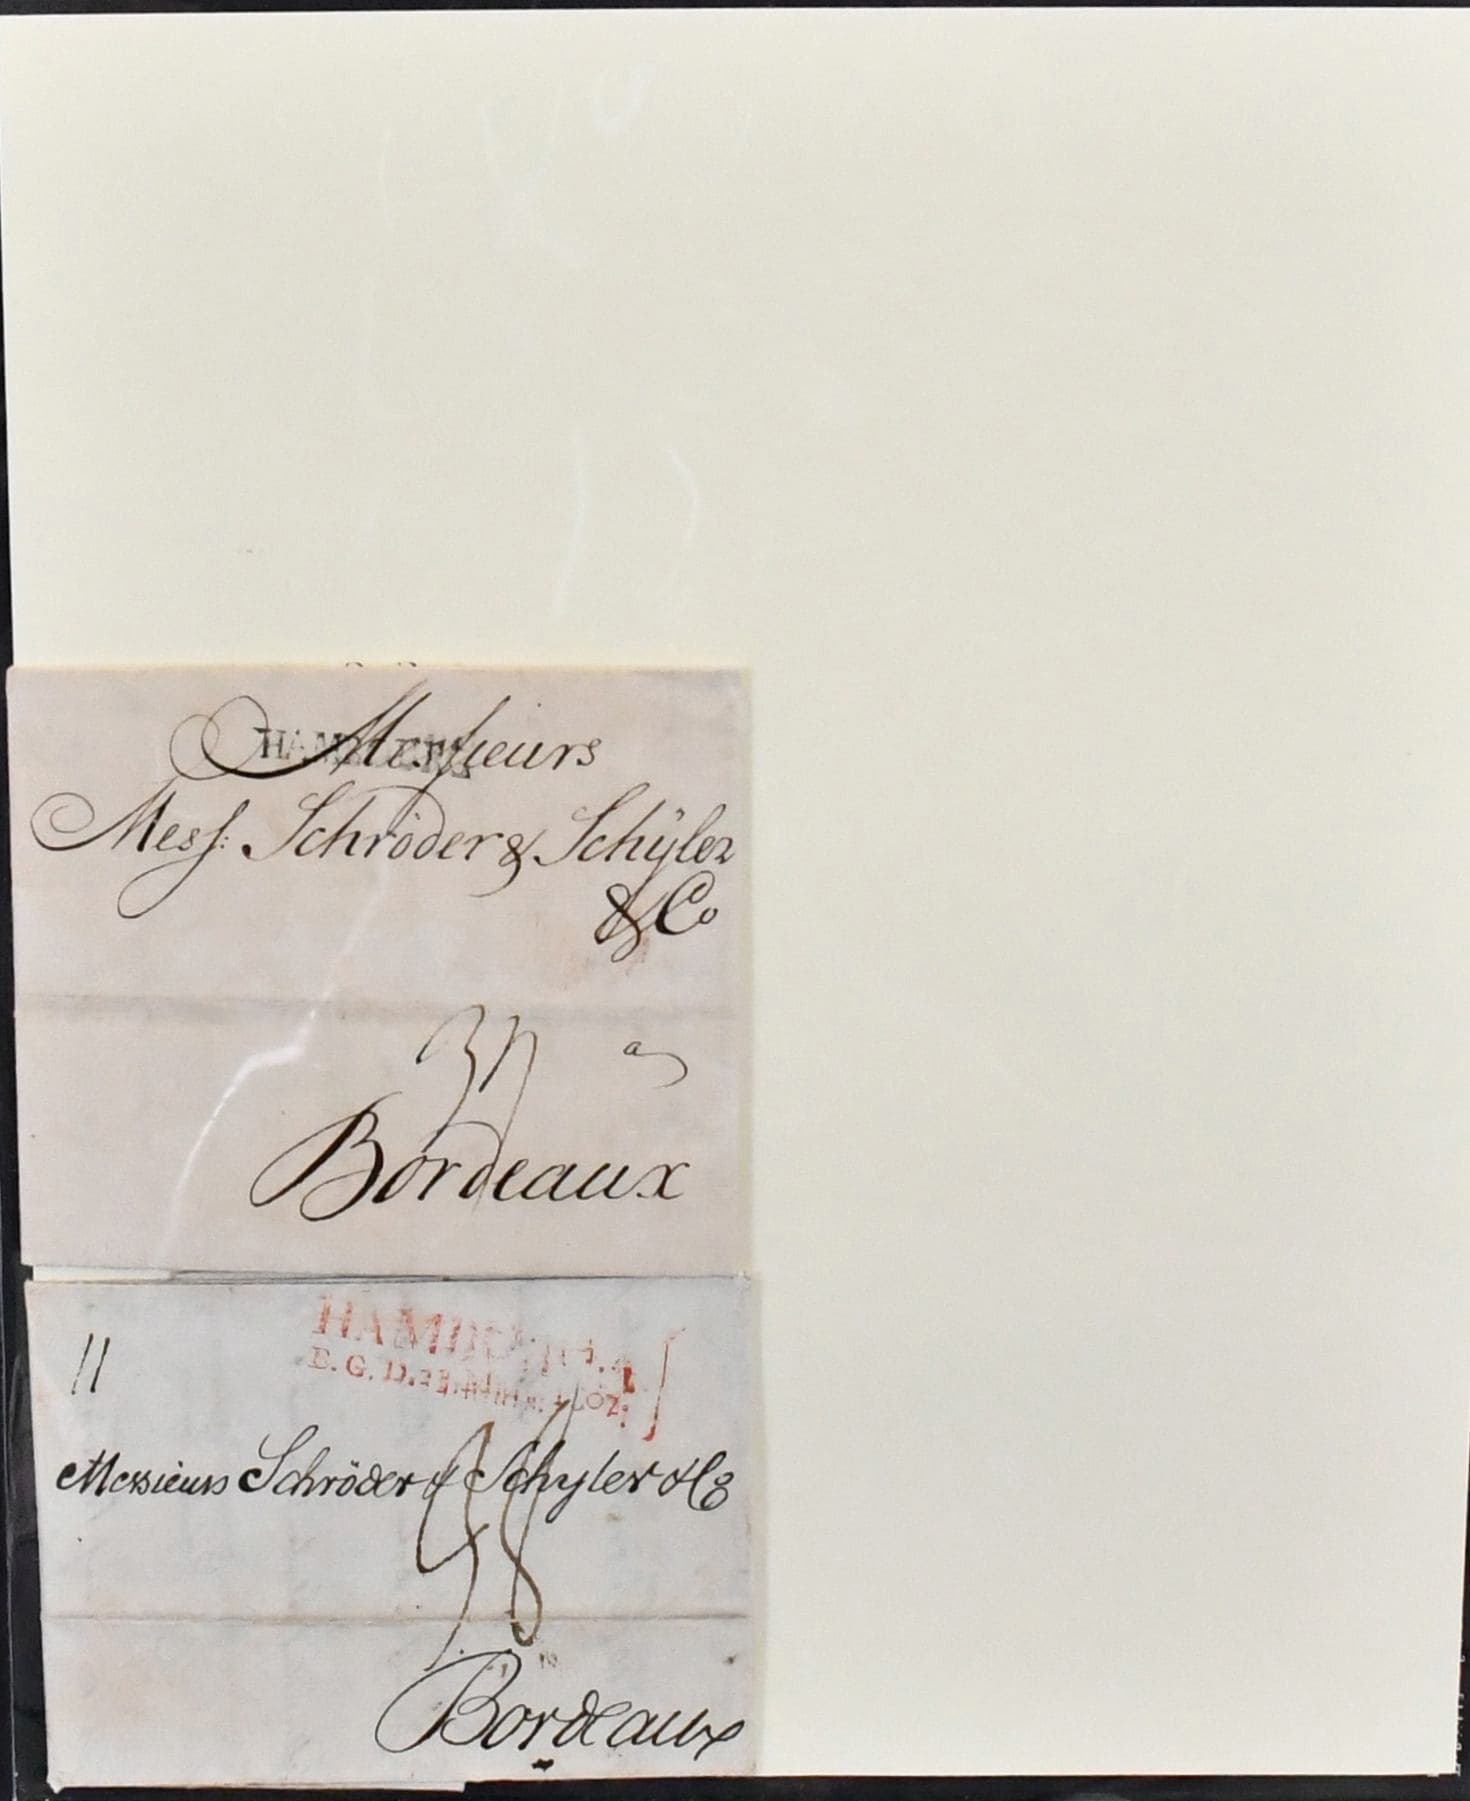 HAMBOURG
Messieurs
Mess: Schröder & Schÿler
& Co
37
Bordeaux
11
Messieurs Schröder & Schyler & Co
38
Bordeaux